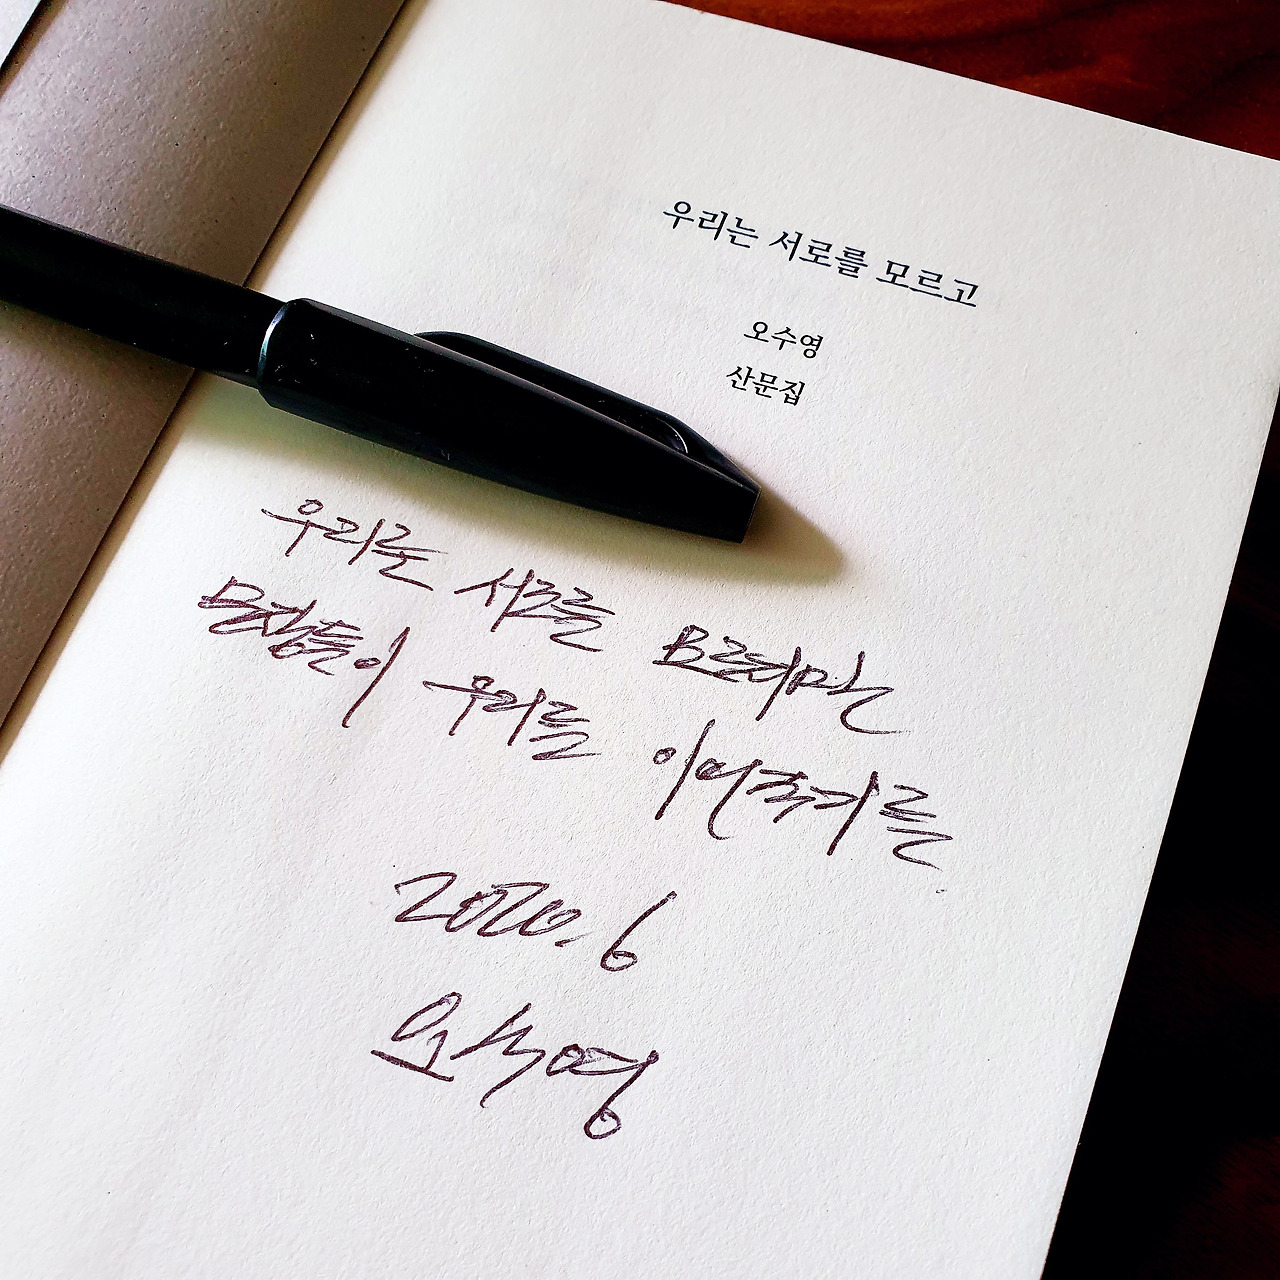 우리는 서로를 모르고
오수영
산문집
우리는 서로를 모르지만
문장들이 우리를 이어주기를
2020. 6
오수영